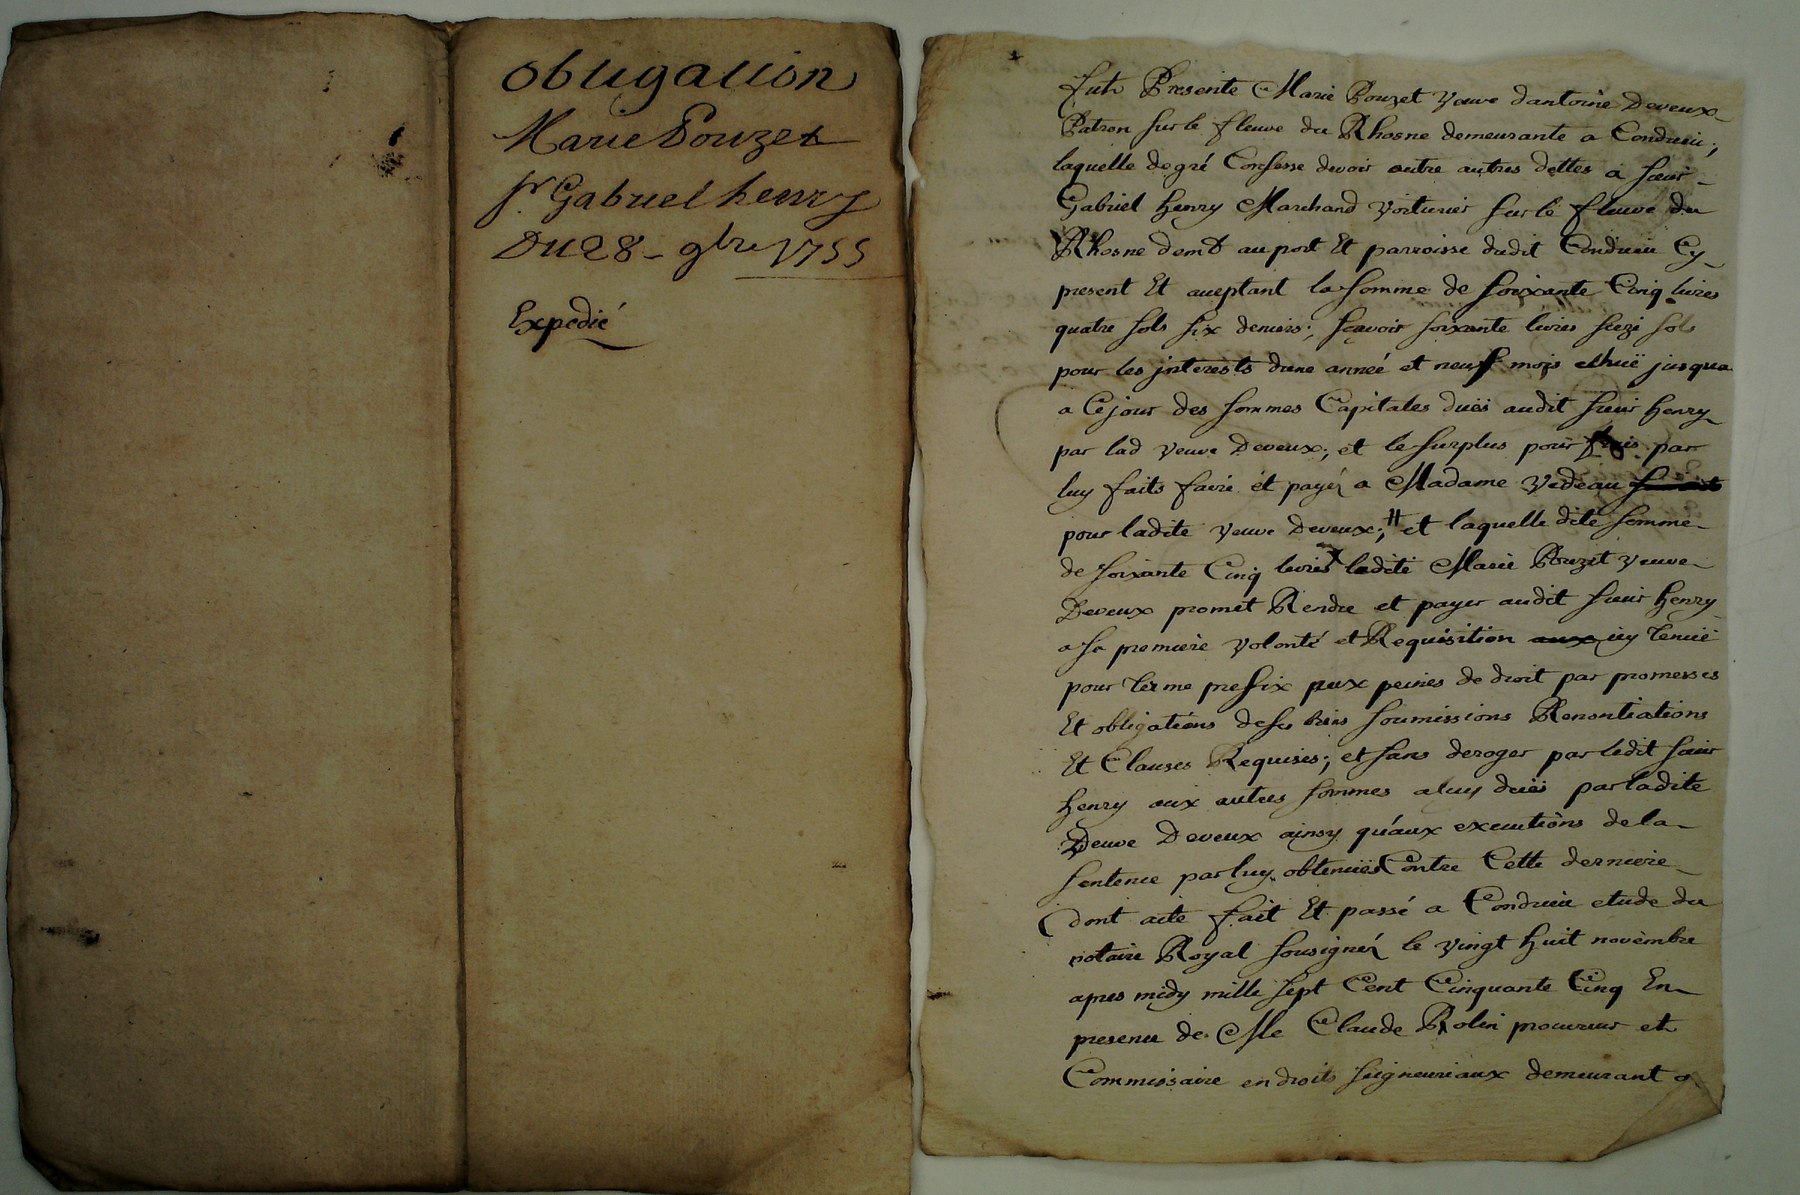 obligation
Marie Pouzet
Sr. Gabriel henry
DU 28 - 9bre 1755
Expedié
Fut Presente Marie Pouzet veuve dantoine Deveux
Patron sur le fleuve du Rhosne demeurante a Condrieu;
laquelle de gré Confesse devoir outre autres dettes a sieur
Gabriel henry Marchand voiturier sur le fleuve du
Rhosne demt au port Et parroisse dudit Condrieu Cy
present Et aceptant la somme de soixante Cinq livres
quatre sols six deniers; sçavoir soixante livres seize sols
pour les jnterests dune année et neuf mois echuë jusqua
a Ce jour des sommes Capitales duës audit sieur henry
par lad veuve Deveux; et le surplus pour frais par
luy faits faire et payés a Madame Vedeau
pour ladite veuve Deveux; # et laquelle dite somme
de soixante Cinq livres ladite Marie Pouzet veuve
Deveux promet Rendre et payer audit sieur henry
a sa premiere volonté et Requisition aux icy tenuë
pour terme prefix aux peines de droit par promesses
Et obligations de ses biens soumissions Renontiations
Et Clauses Requises; et sans deroger par ledit sieur
henry aux autres sommes a luy duës par ladite
veuve Deveux ainsy qu'aux executions de la
sentence par luy obtenuës Contre Cette derniere
dont acte fait Et passé a Condrieu etude du
notaire Royal sousigné le vingt huit novembre
apres midy mille sept Cent Cinquante Cinq En
presence de Me Claude Rolin procureur et
Commissaire en droits seigneuriaux demeurant a